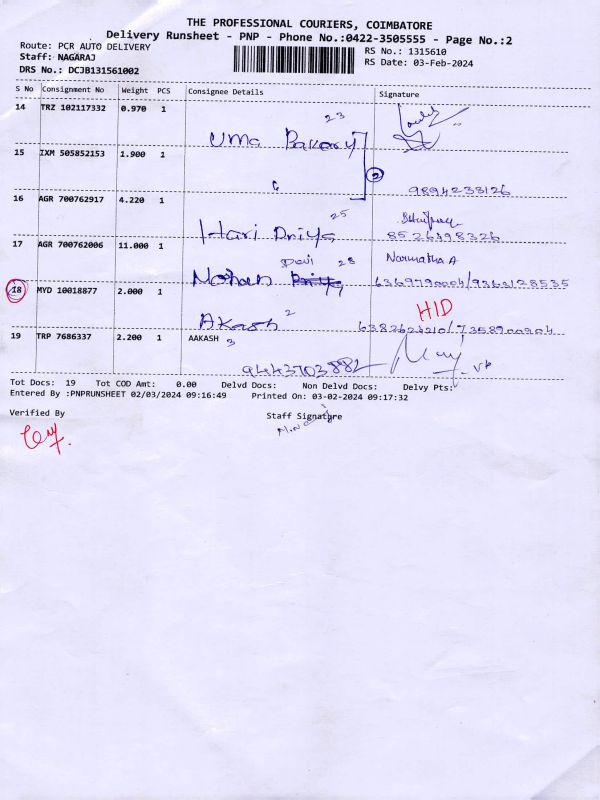 THE PROFESSIONAL COURIERS, COIMBATORE
Delivery Runsheet - PNP - Phone No.:0422-3505555 - Page No.:2
Route: PCR AUTO DELIVERY
RS No.: 1315610
Staff: NAGARAJ
RS Date: 03-Feb-2024
DRS No.: DCJB131561002
S No Consignment No Weight PCS Consignee Details Signature
14 TRZ 102117332 0.970 1
23
Uma
15 IXM 505852153 1.900 1
2
9894233126
16 AGR 700762917 4.220 1
25
Hari Priya
8526498326
17 AGR 700762006 11.000 1
Devi 28
Mohan
Narmatha A
18 MYD 10018877 2.000 1
HID
Akash 2
19 TRP 7686337 2.200 1 AAKASH
3
9443703882
Tot Docs: 19 Tot COD Amt: 0.00 Delvd Docs: Non Delvd Docs: Delvy Pts:
Entered By :PNPRUNSHEET 02/03/2024 09:16:49 Printed On: 03-02-2024 09:17:32
Verified By
Staff Signature